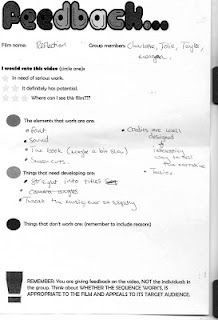 Feedback...
Film name: Reflection Group members Charlotte, Josie, Tayla,
I would rate this video (circle one):
In need of serious work.
It definitely has potential.
Where can I see this film???
The elements that work are:
• Font
• Sound
• The book (maybe a bit slow)
• Smash cuts.
• Credits are well designed
• interesting way to tell the narrative
• Tools.
Things that need developing are:
• Straight into titles
• camera
• Tweak the music over so slightly
Things that don't work are: (remember to include reasons)
REMEMBER: You are giving feedback on the video, NOT the individuals in
the group. Think about WHETHER THE SEQUENCE WORKS, IS
APPROPRIATE TO THE FILM AND APPEALS TO ITS TARGET AUDIENCE.